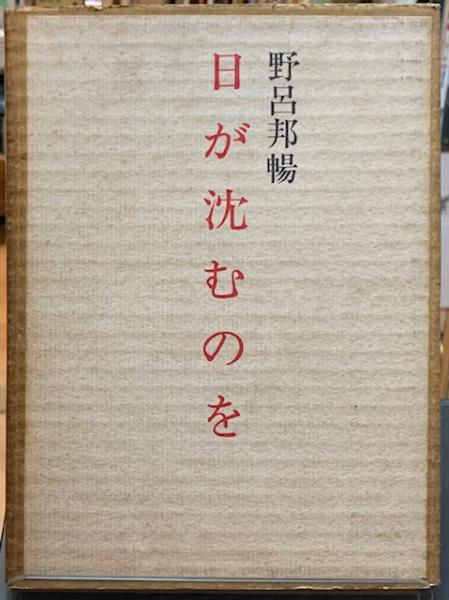 野呂邦暢
日が沈むのを